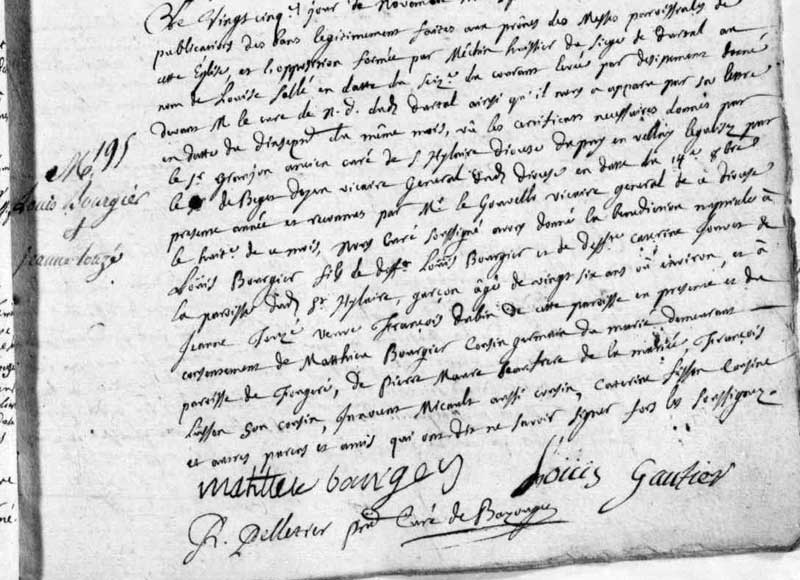 Le vingt cinq.e jour de Novembre
publications des bans legitimement faites aux prônes des Messes paroissiales de
cette Eglise, et l'opposition formée par Méchin huissier du siege de durtal au
nom de Louise Sallé en datte du seiz.e du courant levée par desistement donné
devant M. le curé de N. D. dudt durtal ainsi qu'il nous a apparu par sa lettre
en datte du du même mois, vû les certificats necessaires donnés par
le Sr. Granjon ancien curé de St. Hylaire diocese du puy en vellay legalisé par
le Sr. de Beget doyen vicaire General dudt diocese en datte du 14e. 8bre
presente année et reconnus par Mr. le Gouvello vicaire general de ce diocese
le huite. de ce mois, Nous Curé soussigné avons donné la benediction nuptiale à
Loüis Bourgier fils de deffts Loüis Bourgier et de deffte. Caterine Jouvet de
la paroisse dudt St. Hylaire, garçon âgé de vingt six ans ou environ, et à
Jeanne Touzé veuve François Aubin de cette paroisse en presence et du
consentement de Matthieu Bourgier Cousin germain du marié demeurant
paroisse de Fougeré, de Pierre Maure beaufrere de la mariée, François
Lusson son cousin, Innocent Micault aussi cousin, Caterine Lusson Cousine
et autres parens et amis qui ont dit ne savoir signer fors les soussignez.
M. 195
Louis Bourgier
et
Jeanne Touzé
mathieu bourgey Louis Gautier
R. Pelletier Curé de Bazouges